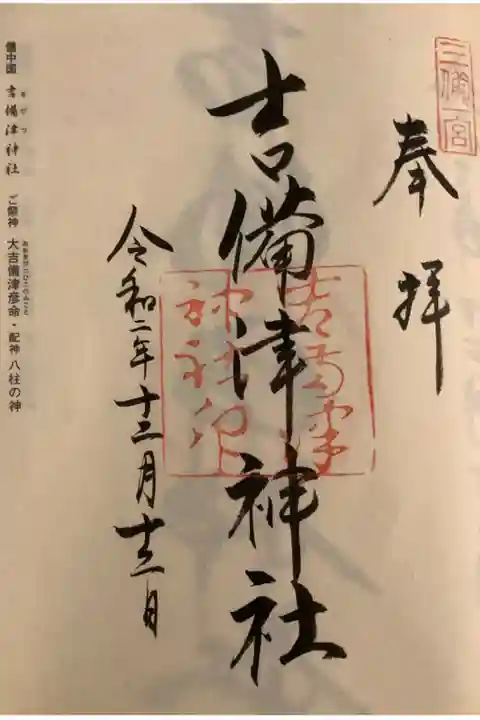 三備一宮
奉拝
吉備津神社
吉備津
神社印
令和二年十二月十二日
備中國 吉備津神社 ご祭神 大吉備津彦命・配神 八柱の神
きびつ